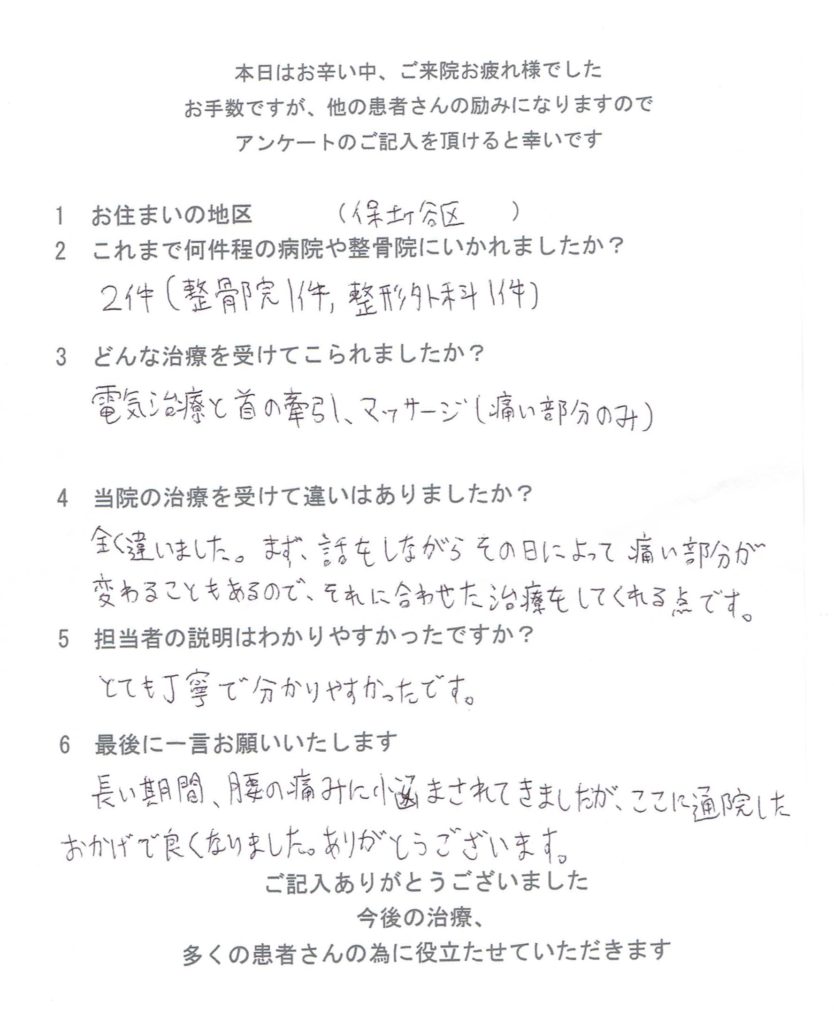 本日はお辛い中、ご来院お疲れ様でした
お手数ですが、他の患者さんの励みになりますので
アンケートのご記入を頂けると幸いです
1 お住まいの地区 (保土ヶ谷区 )
2 これまで何件程の病院や整骨院にいかれましたか？
2件(整骨院1件, 整形外科1件)
3 どんな治療を受けてこられましたか？
電気治療と首の牽引、マッサージ(痛い部分のみ)
4 当院の治療を受けて違いはありましたか？
全く違いました。まず、話をしながらその日によって痛い部分が
変わることもあるので、それに合わせた治療をしてくれる点です。
5 担当者の説明はわかりやすかったですか？
とても丁寧で分かりやすかったです。
6 最後に一言お願いいたします
長い期間、腰の痛みに悩まされてきましたが、ここに通院した
おかげで良くなりました。ありがとうございます。
ご記入ありがとうございました
今後の治療、
多くの患者さんの為に役立たせていただきます